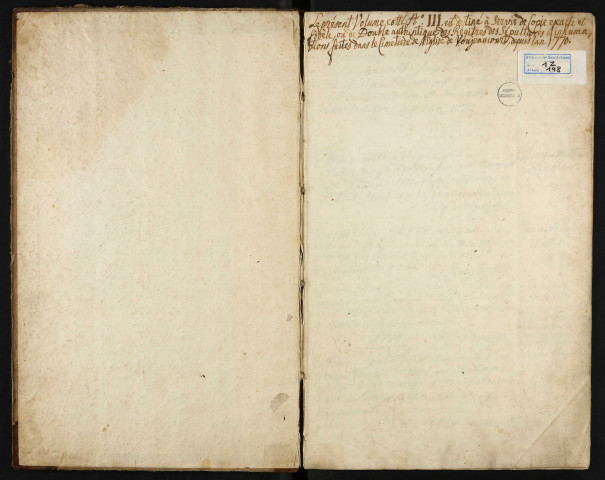 Le présent Volume cotté N.° III. est destiné à servir de Copie exacte et
fidele, ou de Double authentique des Régistres des Sépultures et inhuma-
tions faites dans le Cimetière de l'Eglise de depuis l'an 1770.
1Z
198